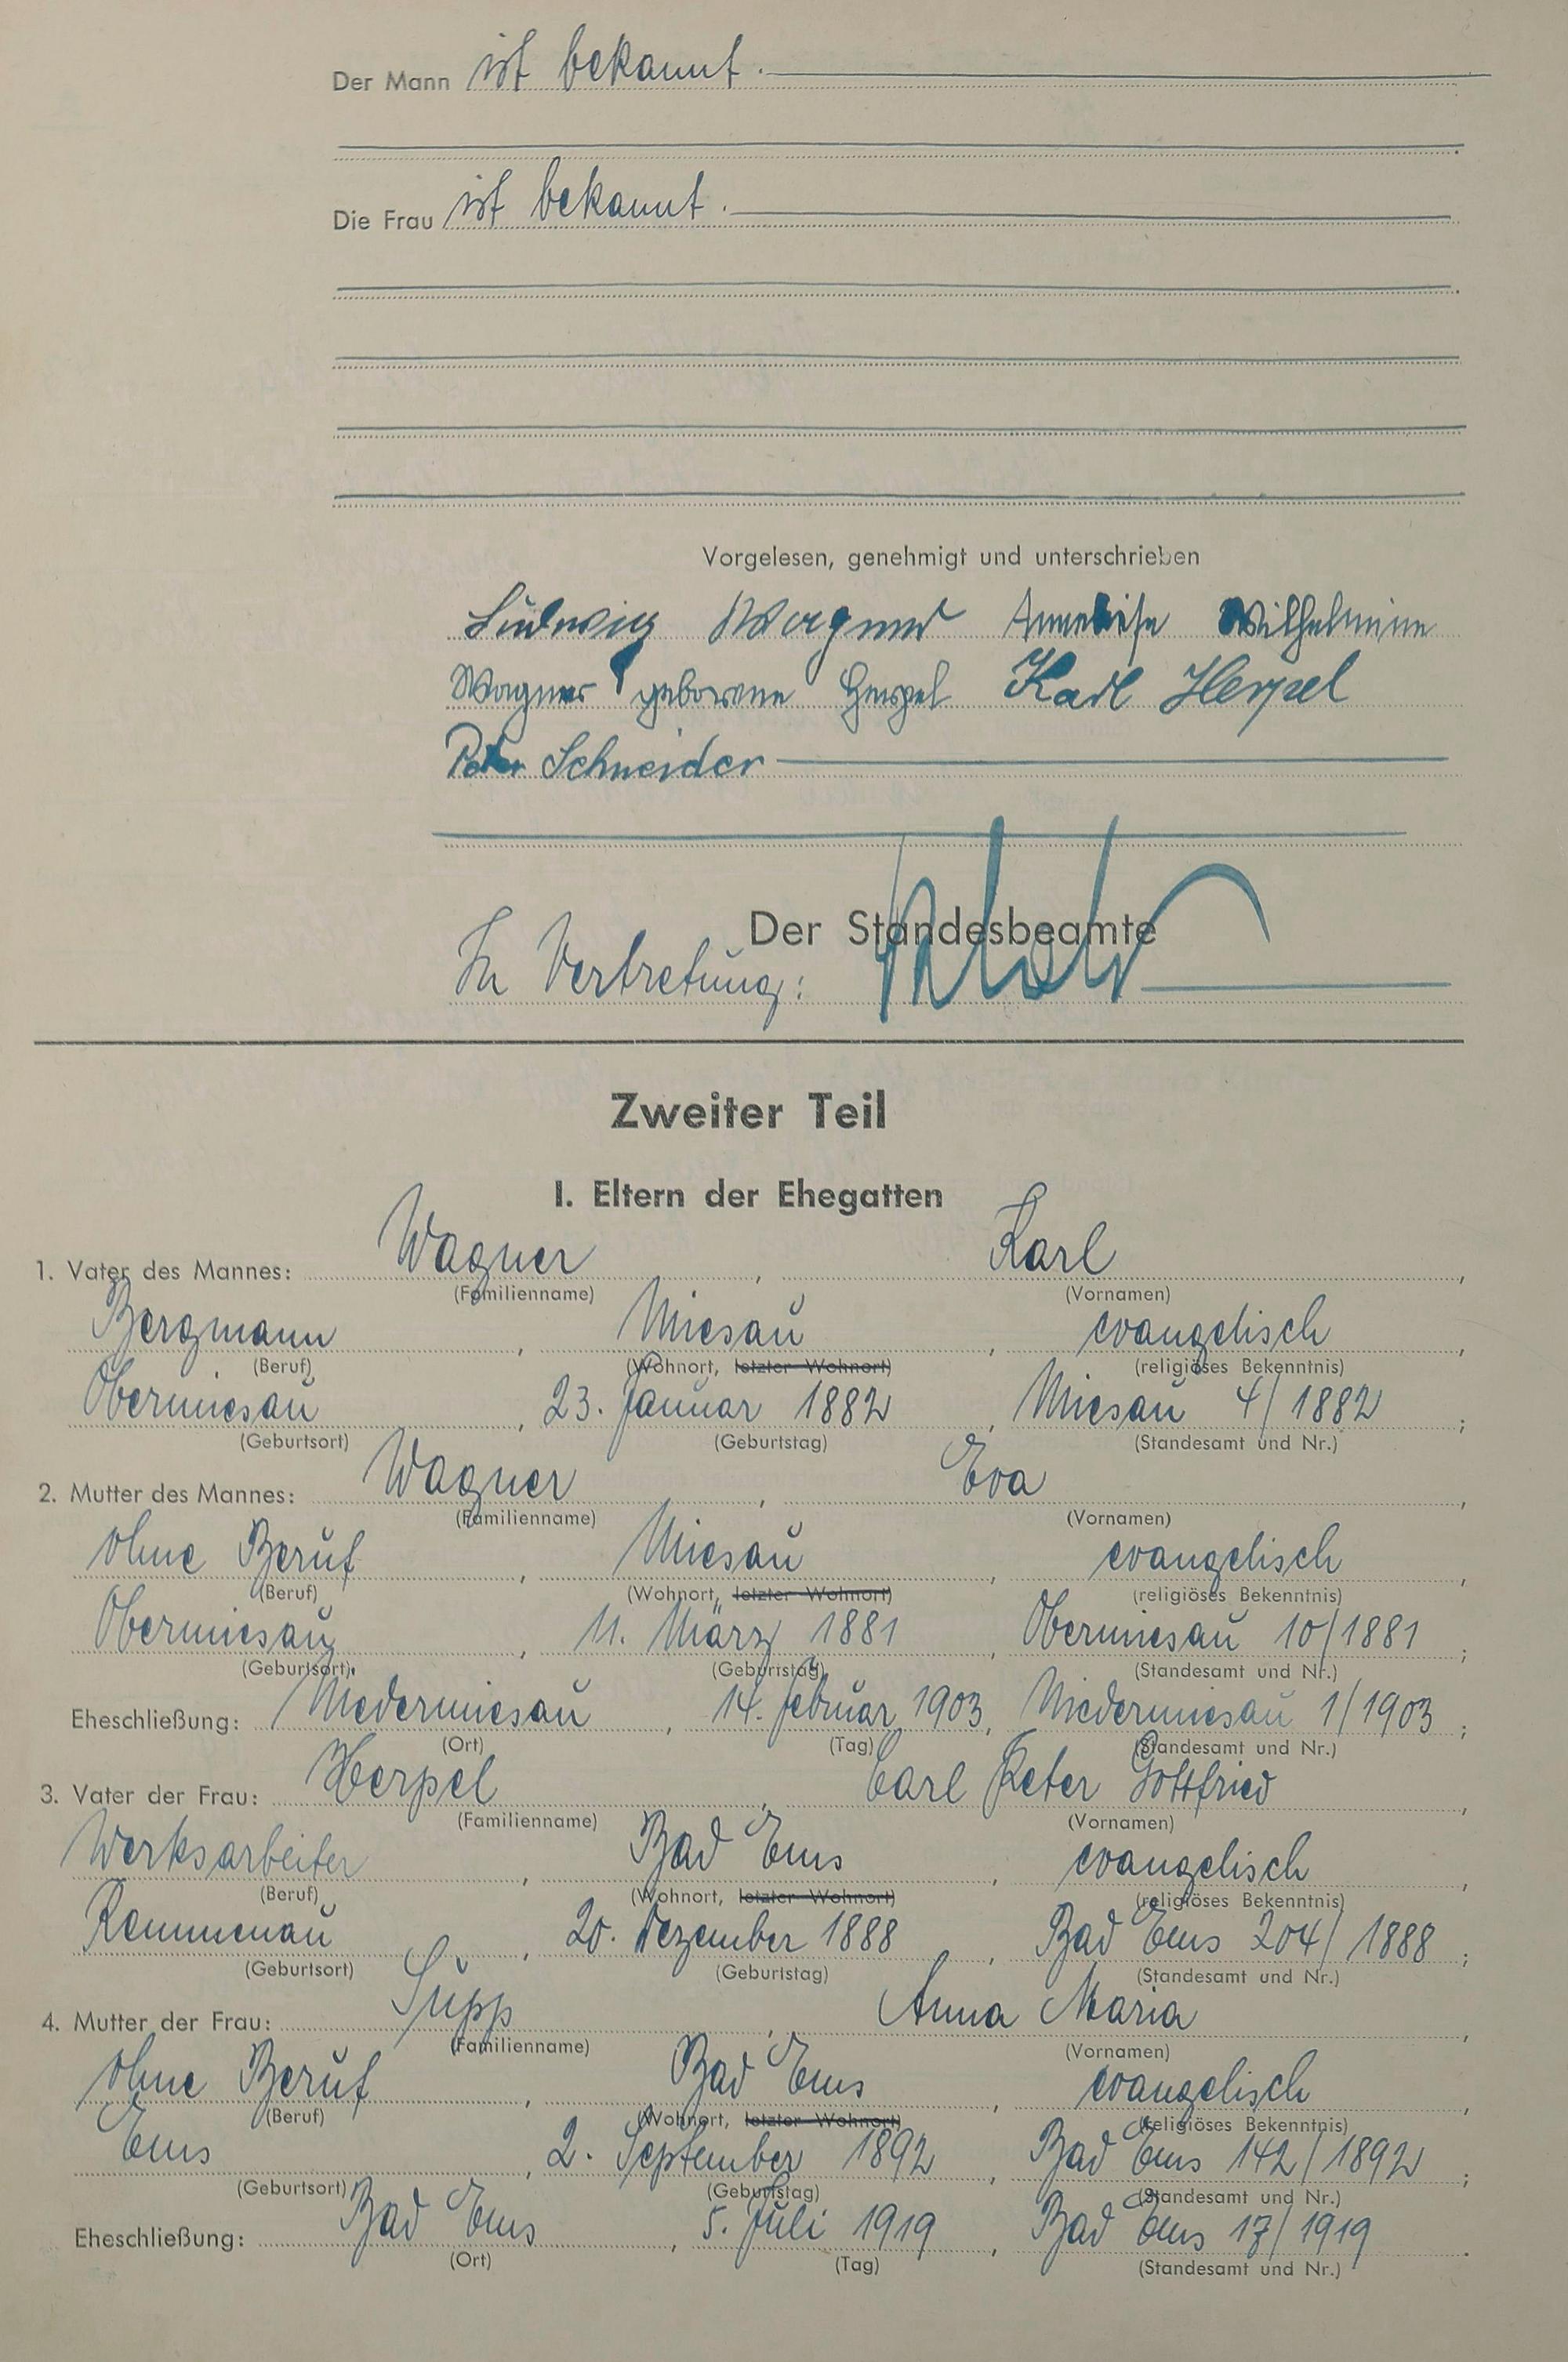 Der Mann ist bekannt.
Die Frau ist bekannt.
Vorgelesen, genehmigt und unterschrieben
Ludwig Wagner Anneliese Wilhelmine
Wagner geborene Herpel Karl Herpel
Peter Schneider
Der Standesbeamte
In Vertretung:
Zweiter Teil
I. Eltern der Ehegatten
1. Vater des Mannes: Wagner, Karl,
(Familienname) (Vornamen)
Bergmann, Miesau, evangelisch,
(Beruf) (Wohnort, letzter Wohnort) (religiöses Bekenntnis)
Obermiesau, 23. Januar 1882, Miesau 4/1882;
(Geburtsort) (Geburtstag) (Standesamt und Nr.)
2. Mutter des Mannes: Wagner, Eva,
(Familienname) (Vornamen)
ohne Beruf, Miesau, evangelisch,
(Beruf) (Wohnort, letzter Wohnort) (religiöses Bekenntnis)
Obermiesau, 11. März 1881, Obermiesau 10/1881;
(Geburtsort) (Geburtstag) (Standesamt und Nr.)
Eheschließung: Niedermiesau, 14. Februar 1903, Niedermiesau 1/1903;
(Ort) (Tag) (Standesamt und Nr.)
3. Vater der Frau: Herpel, Carl Peter Gottfried,
(Familienname) (Vornamen)
Werksarbeiter, Bad Ems, evangelisch,
(Beruf) (Wohnort, letzter Wohnort) (religiöses Bekenntnis)
Kemmenau, 20. Dezember 1888, Bad Ems 204/1888;
(Geburtsort) (Geburtstag) (Standesamt und Nr.)
4. Mutter der Frau: Supp, Anna Maria,
(Familienname) (Vornamen)
ohne Beruf, Bad Ems, evangelisch,
(Beruf) (Wohnort, letzter Wohnort) (religiöses Bekenntnis)
Ems, 2. September 1892, Bad Ems 142/1892;
(Geburtsort) (Geburtstag) (Standesamt und Nr.)
Eheschließung: Bad Ems, 5. Juli 1919, Bad Ems 17/1919.
(Ort) (Tag) (Standesamt und Nr.)